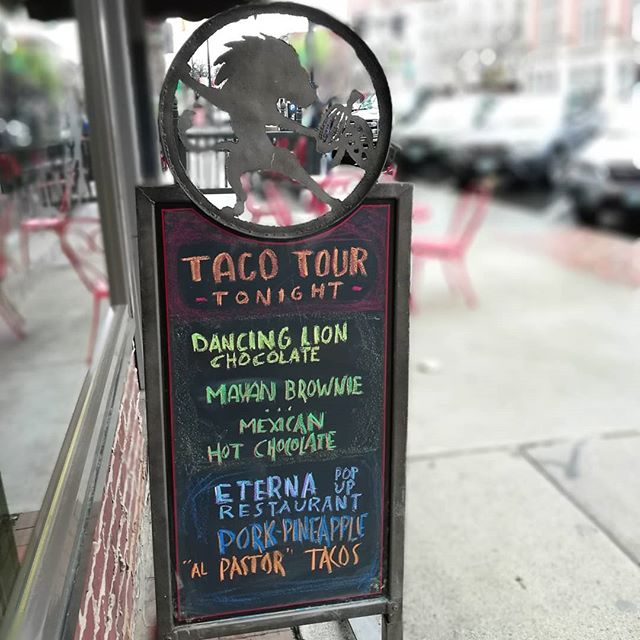 TACO TOUR
- TONIGHT -
DANCING LION
CHOCOLATE
MAYAN BROWNIE
...
MEXICAN
HOT CHOCOLATE
ETERNA POP UP
RESTAURANT
PORK-PINEAPPLE
"AL PASTOR" TACOS